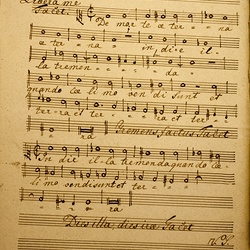 Libera me
Tacet.
De mor te æ ter na
æ ter na in, di e il
la tremen da
quando cæ li mo ven di sunt et
ter ra et ter ra et ter
ra Tremens factus Tacet
In die il la tremenda quando cæ
li mo vendi sunt et ter
ra
Dies illa, dies iræ Tacet